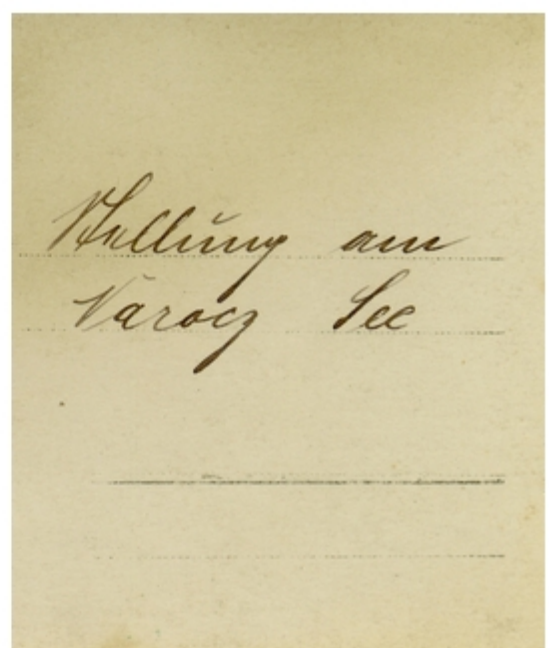 Stellung am
Narocz See